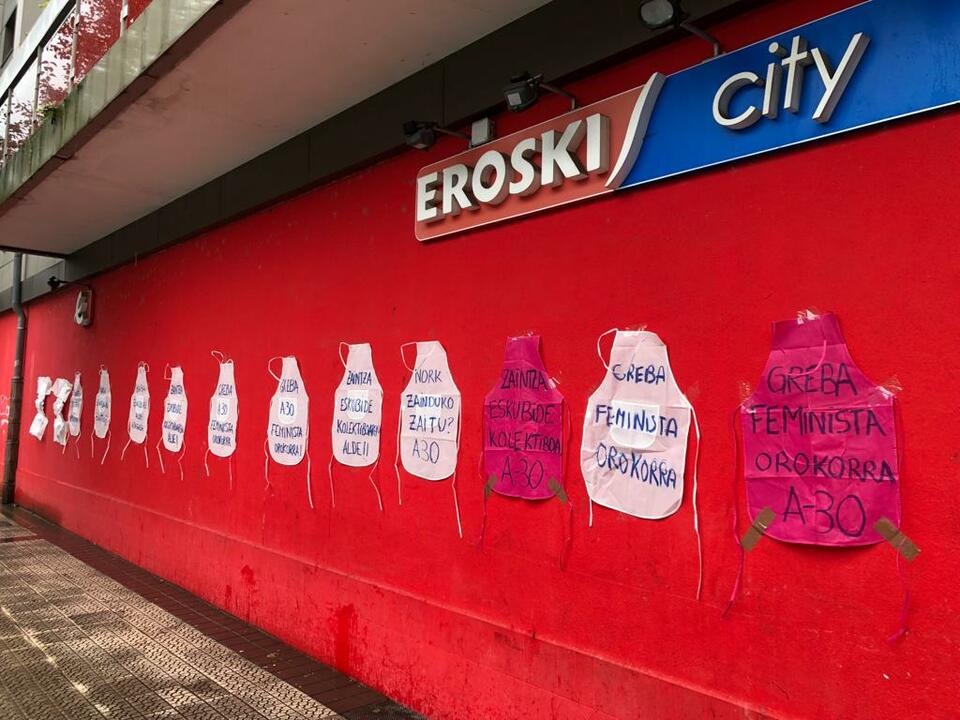 EROSKI city
GREBA
A30
FEMINISTA
OROKORRA
GREBA
A30
FEMINISTA
OROKORRA!
ZAINTZA
ESKUBIDE
KOLEKTIBOAREN
ALDE!!
NORK
ZAINDUKO
ZAITU?
A30
ZAINTZA
ESKUBIDE
KOLEKTIBOA
A-30
GREBA
FEMINISTA
OROKORRA
GREBA
FEMINISTA
OROKORRA
A-30